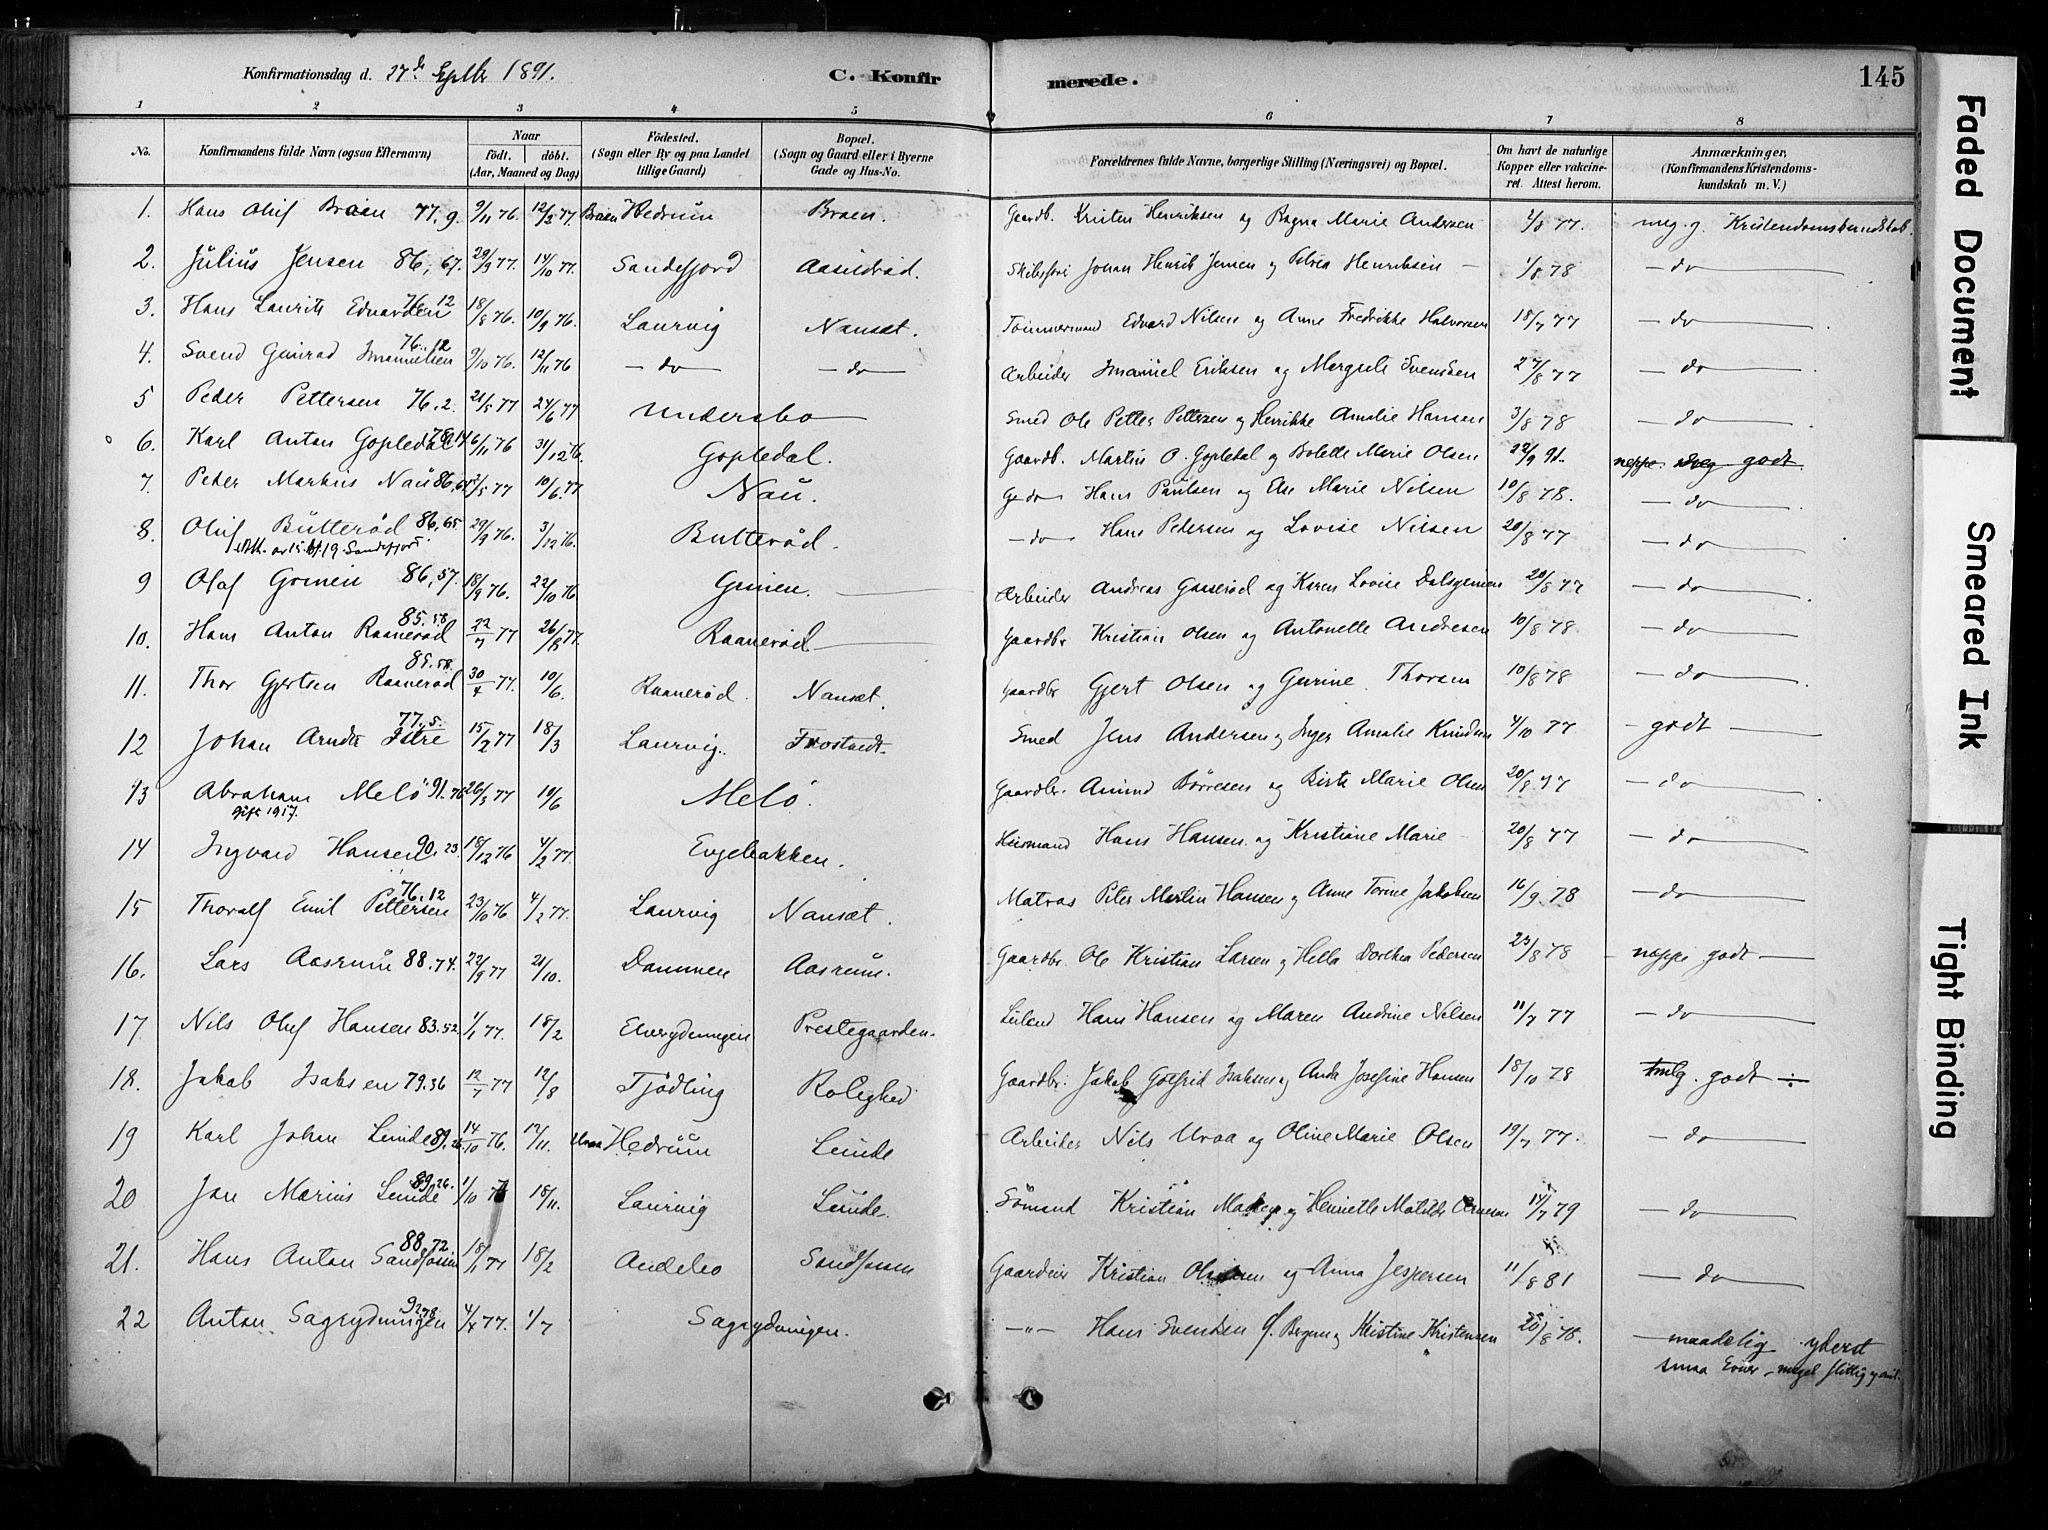 Konfirmationsdag d. 27de Septbr 1891. C. Konfirmerede. 145
1 2 3 4 5 6 7 8
No. Konfirmandens fulde Navn (ogsaa Efternavn) Naar født. døbt. (Aar, Maaned og Dag) Fødested. (Sogn eller By og paa Landet tillige Gaard) Bopæl. (Sogn og Gaard eller i Byerne Gade og Hus-No. Forældrenes fulde Navne, borgerlige Stilling (Næringsvei) og Bopæl. Om havt de naturlige Kopper eller vakcineret. Attest herom. Anmærkninger, (Konfirmandens Kristendomskundskab m. V.)
1. Hans Olif Braen 77,9. 9/11 76. 12/2 77. Braen Hedrum Braen. Gaardb. Kristen Henriksen og Ragna Marie Andersen 1/8 77. meg. g. Kristendomskundskab.
2. Julius Jensen 86,67. 29/9 77. 14/10 77. Sandefjord Skibsfører Johan Henrik Jensen og Petrea Henriksen 1/8 78 do
3. Hans Laurits Edvardsen 76 12 18/8 76. 10/9 76. Laurvig Nanset. Tømmermand Edvard Nilsen og Anne Fredrikke Halvorsen 18/7 77 do
4. Svend Gunrad Imanuelsen 76. 12 9/10 76. 12/11 76 do do Arbeider Imanuel Eriksen og Margrete Svendsen 27/8 77 do
5 Peder Pettersen 76.2. 21/5 77 24/6 77 Undersbo Smed Ole Petter Pettersen og Henrikke Amalie Hansen 3/8 78 do
6. Karl Anton Gopledal 6/11 76 31/12 76. Gopledal. Gaardb. Martin O. Gopledal og Bolette Marie Olsen 22/9 91. neppe godt.
7. Peder Markus Nau 86, 2/5 77 10/6 77 Nau. do Hans Paulsen og Else Marie Nilsen 10/8 78. do
8. Oluf Butterød 86,65 29/9 76. 3/12 76. Butterød. do Hans Pedersen og Lovise Nilsen 20/8 77 do
19 Sandefjord
9 Olaf Grinen 86,57. 18/9 76. 22/10 76 Grinen. Arbeider Andreas Gaaserød og Karen Lovise 20/8 77 do
10. Hans Anton Raanerød 85.58 22/7 77 26/8 77. Raanerød Gaardbr Kristian Olsen og Antonette Andresen 10/8 78 do
11. Thor Gjertsen Raanerød 85.58. 30/4 77. 10/6. Raanerød. Nanset. Gaardbr Gjert Olsen og Gurine Thorsen 10/8 78 do
12 Johan Arndt Istre 77.5. 15/2 77 18/3 Laurvig. Frostvedt. Smed Jens Andersen og Inger Amalie Knudsen 4/10 77 godt
13 Abraham Melø 91.76 26/3 77 10/6 Melø. Gaardbr. Amund Børresen og Birte Marie Olsen 20/8 77 do
gift 1917.
14 Ingvard Hansen 90.23. 18/12 76 4/2 77. Evjebakken. Husmand Hans Hansen og Kristiane Marie 20/8 77 do
15 Thoralf Emil Pettersen 76.12 23/10 76 4/2 77. Laurvig Nanset. Matros Peter Martin Hansen og Anne Torine Jakobsen 16/9 78 do
16. Lars Aasrum 88.74. 22/9 77 21/10. Dammen Aasrum. Gaardbr. Ole Kristian Larsen og Hella Dorthea Pedersen 23/8 78 neppe godt
17 Nils Oluf Hansen 83.52 1/1 77. 18/2 Elverydningen Prestegaarden. Hans Hansen og Maren Andrine Nilsen 11/7 77 do
18. Jakob Isaksen 79.36 12/7 77 12/8 Tjødling Rolighed Gaardbr. Jakob Gotfrid Isaksen og Anda Josefine Hansen 18/10 78 tmlg. godt
19 Karl Johan Lunde 89.26 14/10 76. 12/11. Uvaa Hedrum Lunde Arbeider Nils Uvaa og Oline Marie Olsen 19/7 77. do
20 Jon Marius Lunde 89.26. 1/10 76 18/11. Laurvig Lunde. Sømand Kristian Madsen og Henriette Matilde Arnesen 14/7 79 do
21. Hans Anton Sandfossen 88.72 18/1 77 18/2 Andebo Sandfossen Gaardeier Kristian og Anna Jespersen 11/8 81 do
22 Anton Sagrydningen 92.78 4/4 77. 1/7 Sagrydningen. Hans Svendsen og Kristine Kristensen 20/8 78. maadelig yderst
smaa Evner, meget flittig
Faded Document
Smeared Ink
Tight Binding